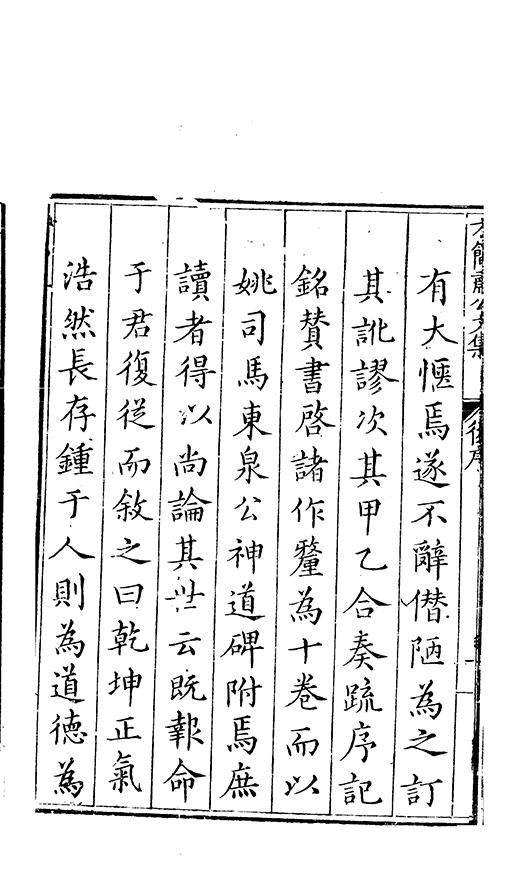 有大愜焉遂不辭僣陋為之訂
其訛謬次其甲乙合奏疏序記
銘賛書啓諸作釐為十卷而以
姚司馬東泉公神道碑附焉庶
讀者得以尚論其世云既報命
于君復從而敘之曰乾坤正氣
浩然長存鍾于人則為道德為